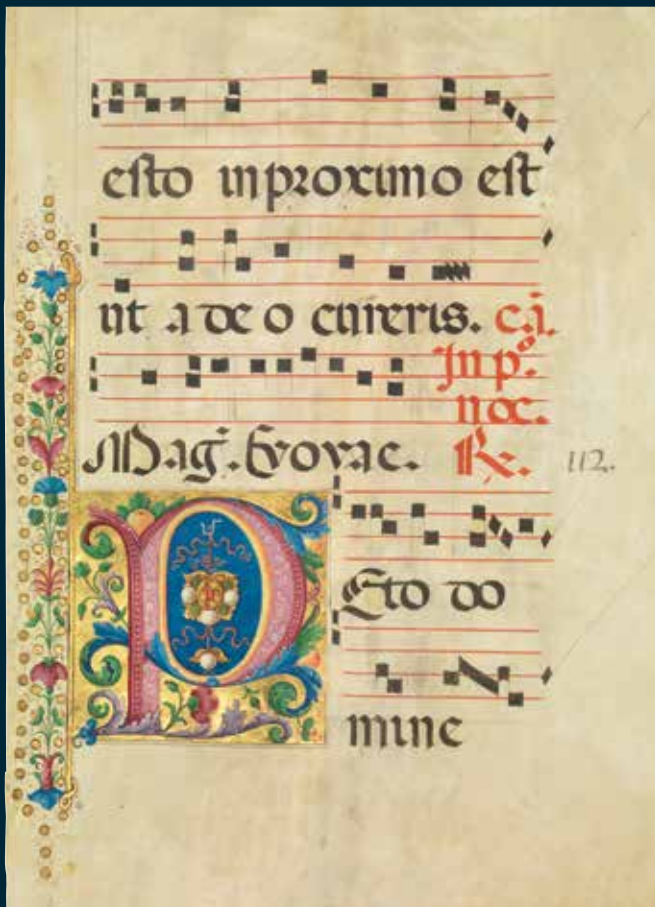 esto in proximo est
ut a deo cureris. c.ā.
In p.º
noc.
Mag. Evovae. R. 112.
PEto do
mine